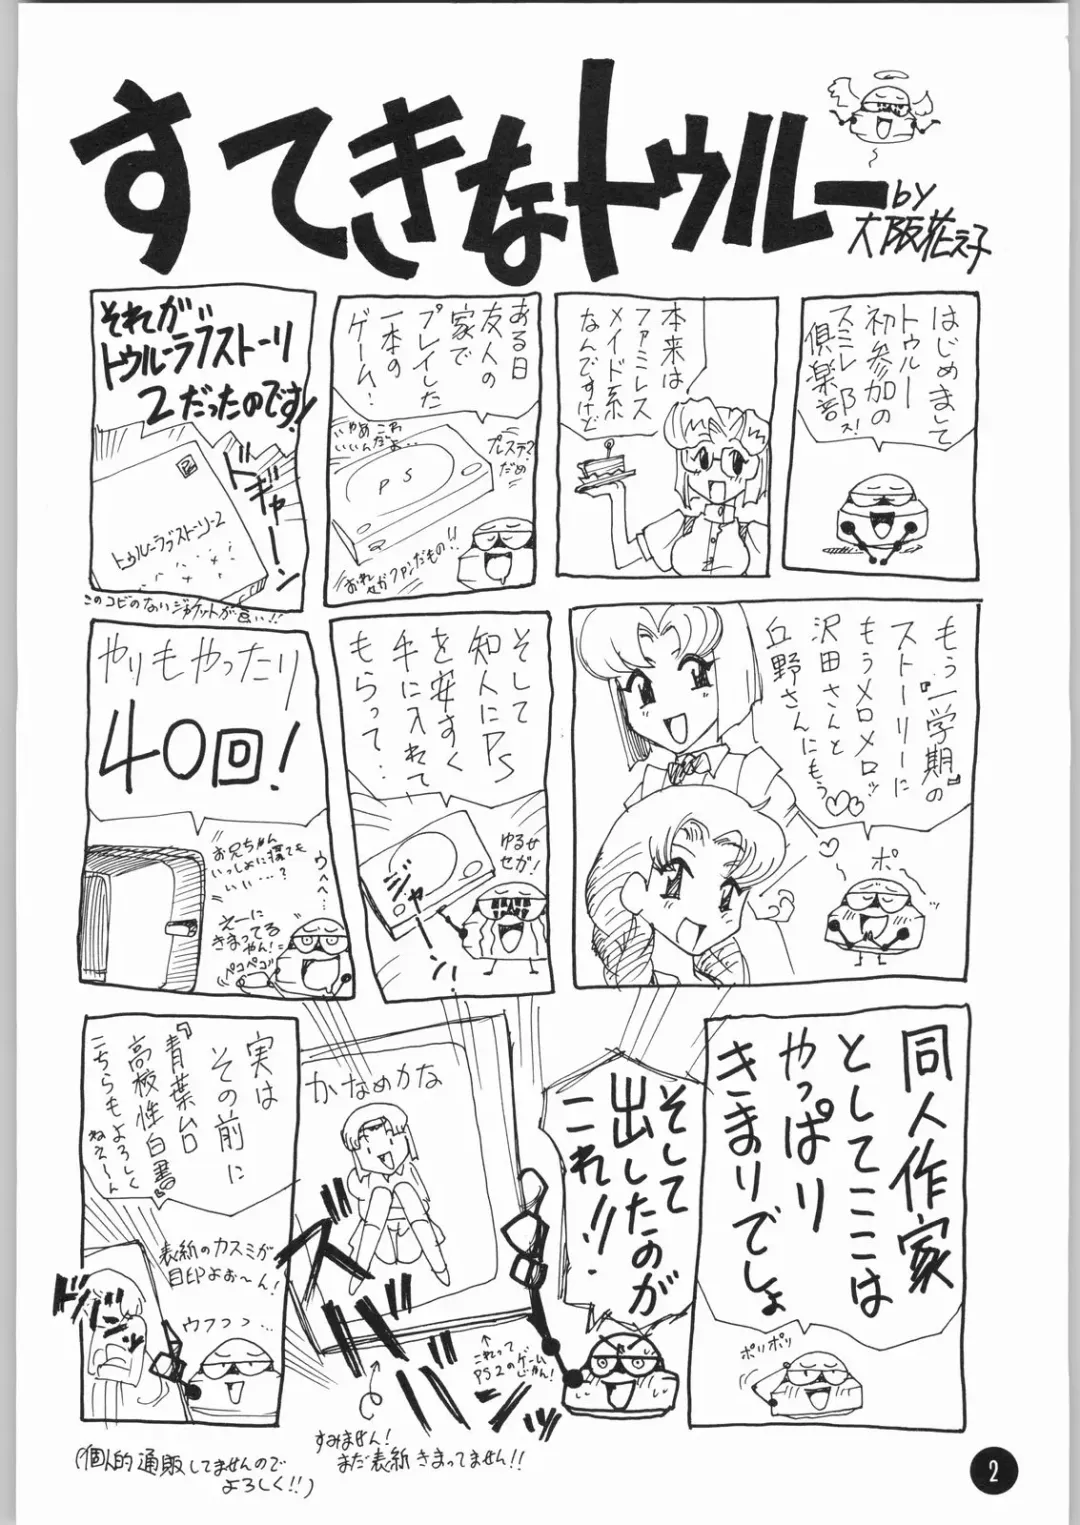 すてきなトゥルー
by
大阪花え子
はじめまして
トゥルー
初参加の
スミレB
倶楽音ス!
本来は
ファミレス
メイド系
なんですけど
ある日
友人の
家で
プレイした
一本の
ゲーム!
プレステ?
だめ
やめ これ
いいんだよ…
PS
おれ
セガファンだもの!!
それが
トゥルーラブストーリー
2だったのです!
ドギャーン
トゥルーラブストーリー2
このコビのないジャケットが良い!!
もう『一学期』の
ストーリーに
もうメロメロッ
沢田さんと
丘野さんにもう
ポ
そして
知人にPS
を安すく
手に入れて
もらって…
ゆるせ
セガ!
ジャーン!
やりもやったり
40回!
お兄ちゃん
いっしょに寝ても
いい…?
ウヘヘヘ…
えーに
きまってる
やん!
ペコペコ
同人作家
としてここは
やっぱり
きまりでしょ
ポリポリ
そして
出したのが
これ!!
かなめかな
ズババババンッ
↑
これって
PS2のゲーム
じゃん!
すみません!
まだ表紙きまってません!!
実は
その前に
『青葉ムロ
高校性白書』
こちらもよろしく
ねえ〜ん
表紙のカスミが
目印よお〜ん!
ウフっっ…
ドババンッ
(個人的通販してませんので
よろしく!!)
2